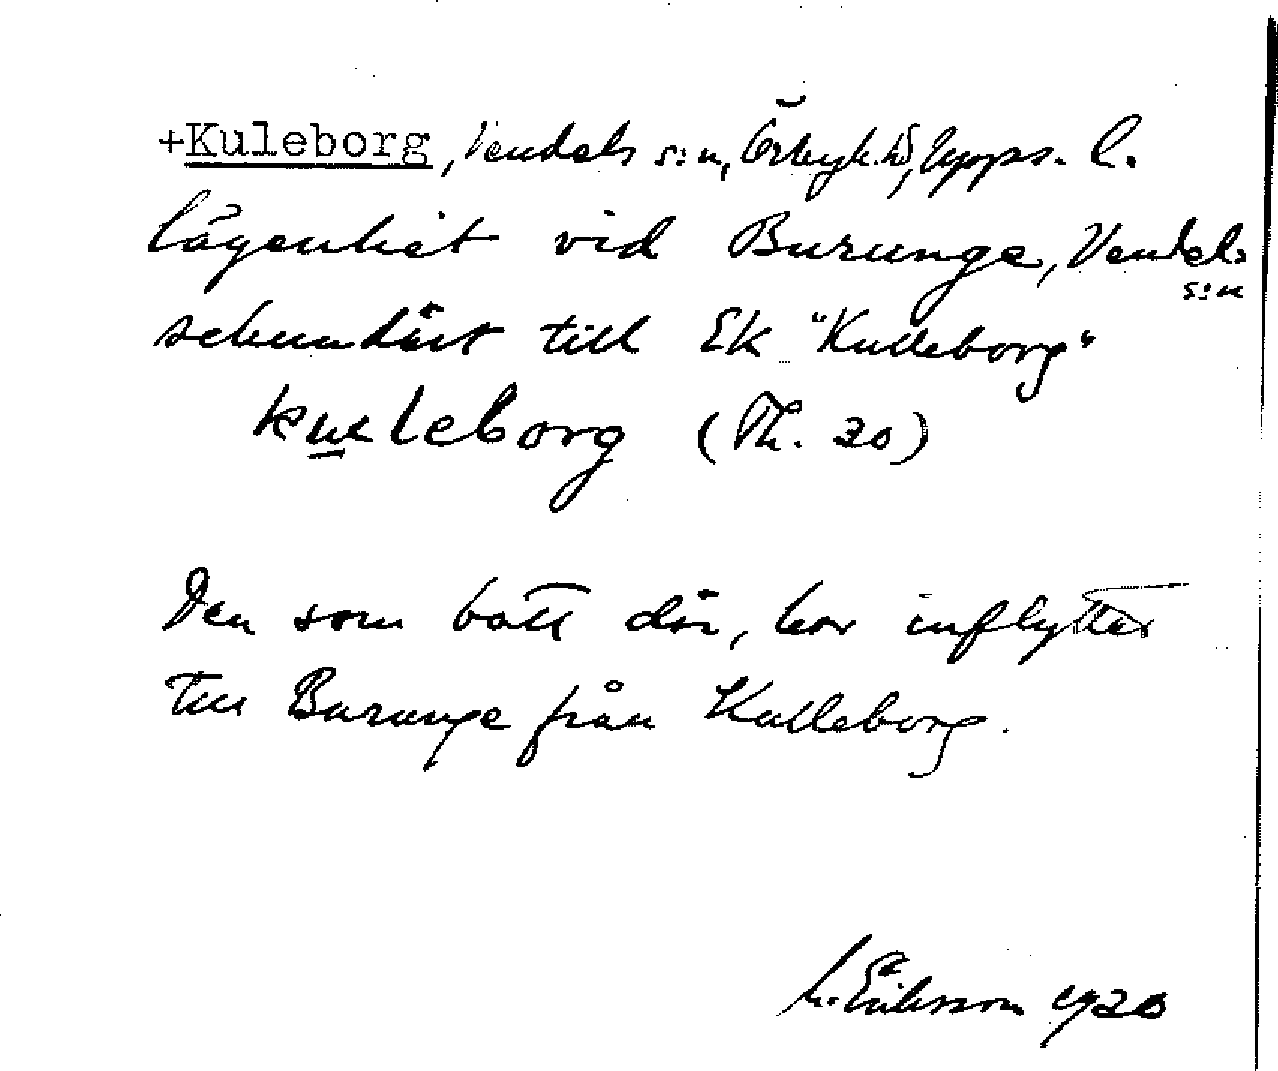 +Kuleborg, Vendels s:n, Örbyh. hd, Upps. l.
lägenhet vid Burunge, Vendels s:n
sekundärt till Ek "Kulleborg"
kuleborg (Th. 20)
Den som bott där, har inflyttat
till Burunge från Kulleborg.
Eriksson 1920